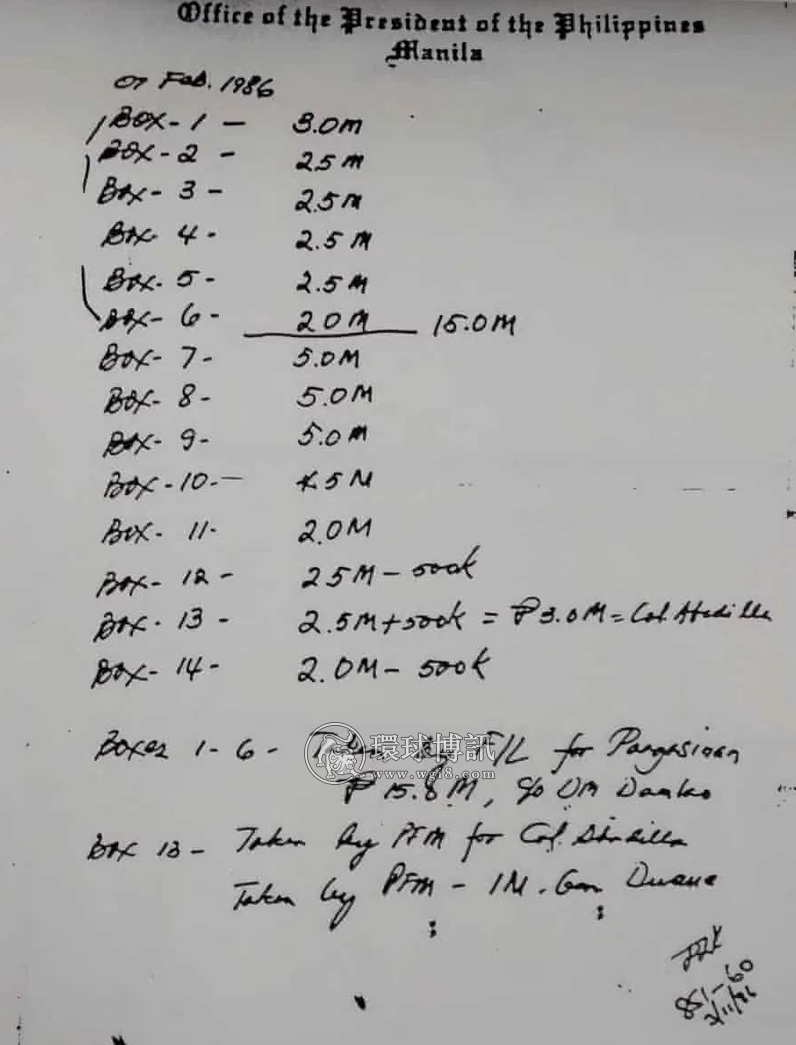 Office of the President of the Philippines
Manila
07 Feb. 1986
Box - 1 - 3.0m
Box - 2 - 25 m
Box - 3 - 2.5 M
Box 4 - 2.5 M
Box - 5 - 2.5 M
Box - 6 - 20 M 15.0M
Box - 7 - 5.0M
Box - 8 - 5.0M
Box - 9 - 5.0 M
Box - 10 - 5 M
Box - 11 - 2.0M
Box - 12 - 25M - 500K
Box - 13 - 2.5M + 500K = ₱3.0M = Col.
Box - 14 - 2.0M - 500K
Boxes 1 - 6 - by F/L for Pangasinan
₱ 15.8M, c/o DM
Box 13 - Taken by PFM for Col.
Taken by PFM - 1M. Gen
環球博訊
www.wgi8.com
851-60
2/11/86